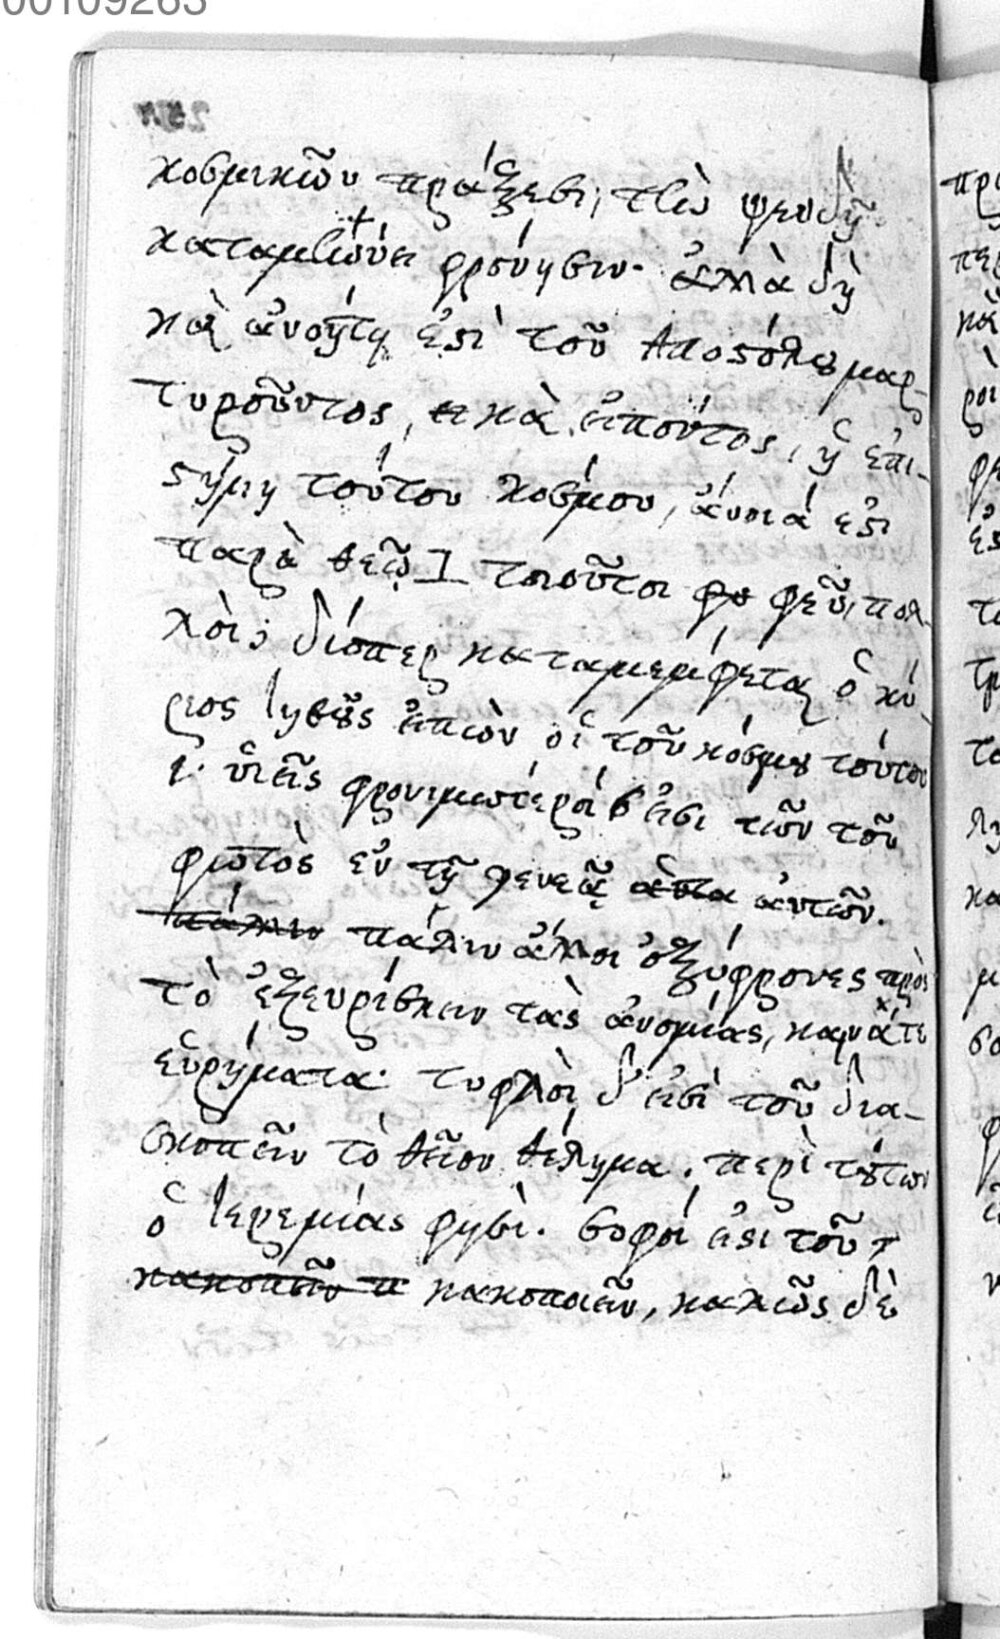 00109263
κοσμικῶν πράξεσι, τὴν ψευδῆ
καταμηνύει φρόνησιν· ἀλλὰ δὴ
καὶ ἀνοήτη ἐστὶ τοῦ Ἀποστόλου μαρ-
τυροῦντος, καὶ εἰπόντος, ἡ ἐπι-
στήμη τούτου κόσμου, ἄνοιά ἐστι
παρὰ θεῷ τοιοῦτοι φεῦ, πολ-
λοὶ; διόπερ καταμεμφεται ὁ κύ-
ριος Ἰησοῦς εἰπὼν οἱ τοῦ κόσμου τούτου
υἱεῖς φρονιμωτεροί εἰσι τῶν τοῦ
φωτὸς ἐν τῇ γενεᾷ αὐτῶν.
πάλιν πάλιν ἄλλοι ὀξύφρονες πρὸς
τὸ ἐξευρίσκειν τὰς ἀνομίας,
εὑρήματα· τυφλοὶ δ' εἰσὶ τοῦ δια-
σκοπεῖν τὸ θεῖον θέλημα. περὶ τούτων
ὁ Ἱερεμίας φησὶ. σοφοί εἰσι τοῦ
κακοποιεῖν, καλῶς δὲ